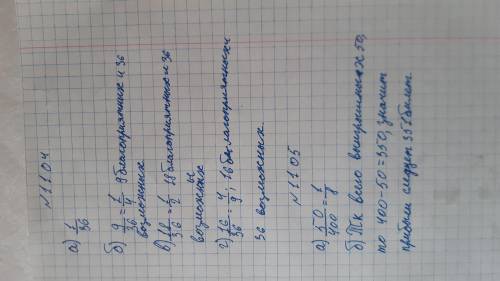 №1104
а) 1/36
б) 9/36 = 1/4 9 благоприятных и 36
возможных
в) 18/36 = 1/2 18 благоприятных и 36
возможных
г) 16/36 = 4/9; 16 благоприятных и
36 возможных.
№1105
а) 50/400 = 1/8
б) Тк всего выигрышных 50,
то 400-50=350, значит
следует 351 билет.